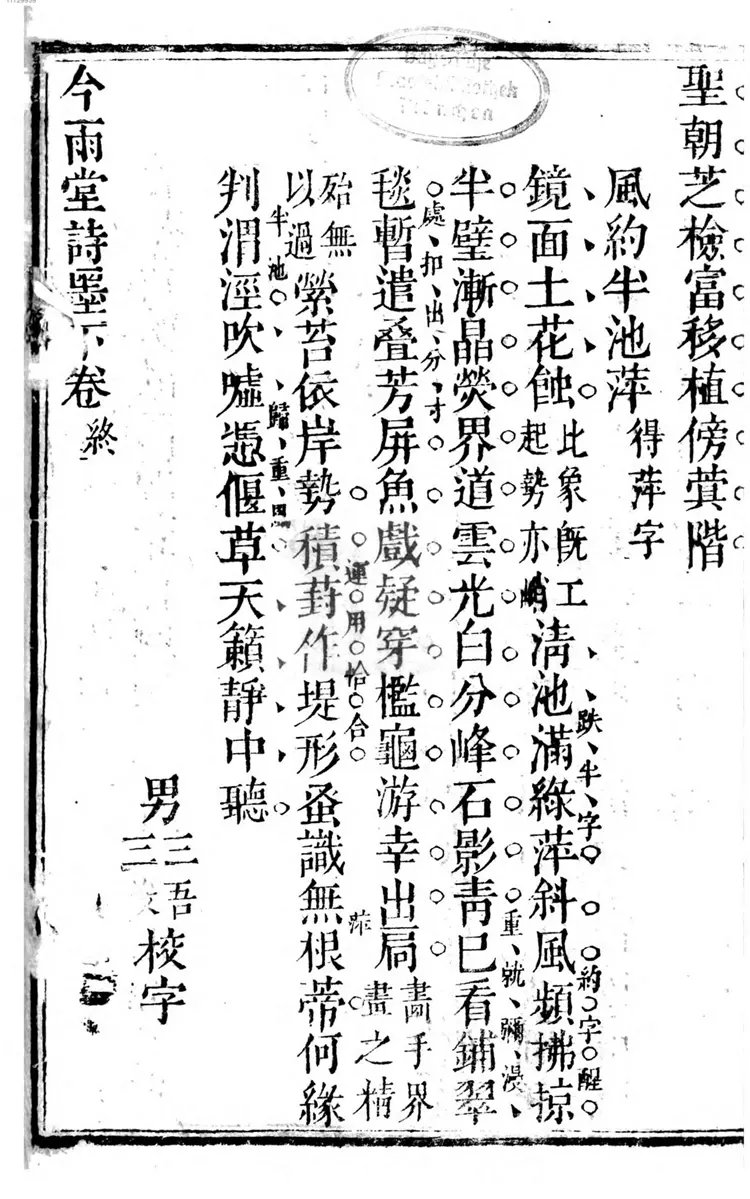 聖朝芝檢富移植傍蓂階
風約半池萍 得萍字
鏡面土花蝕 比象既工起勢亦峭 清池滿綠萍斜風頻拂掠
跌半字 約字醒
半璧漸晶熒界道雲光白分峰石影靑已看鋪翠
重就彌漫
毯暫遣叠芳屏魚戲疑穿檻龜游幸出局 畵手界畫之精
處扣出分寸
殆無以過 縈苔依岸勢積葑作堤形蚤識無根蔕何緣
運用恰合
判渭涇吹噓憑偃草天籟靜中聽
半池 歸重
男三吾
三 校字
今雨堂詩墨 卷終
Staatsbibliothek
München